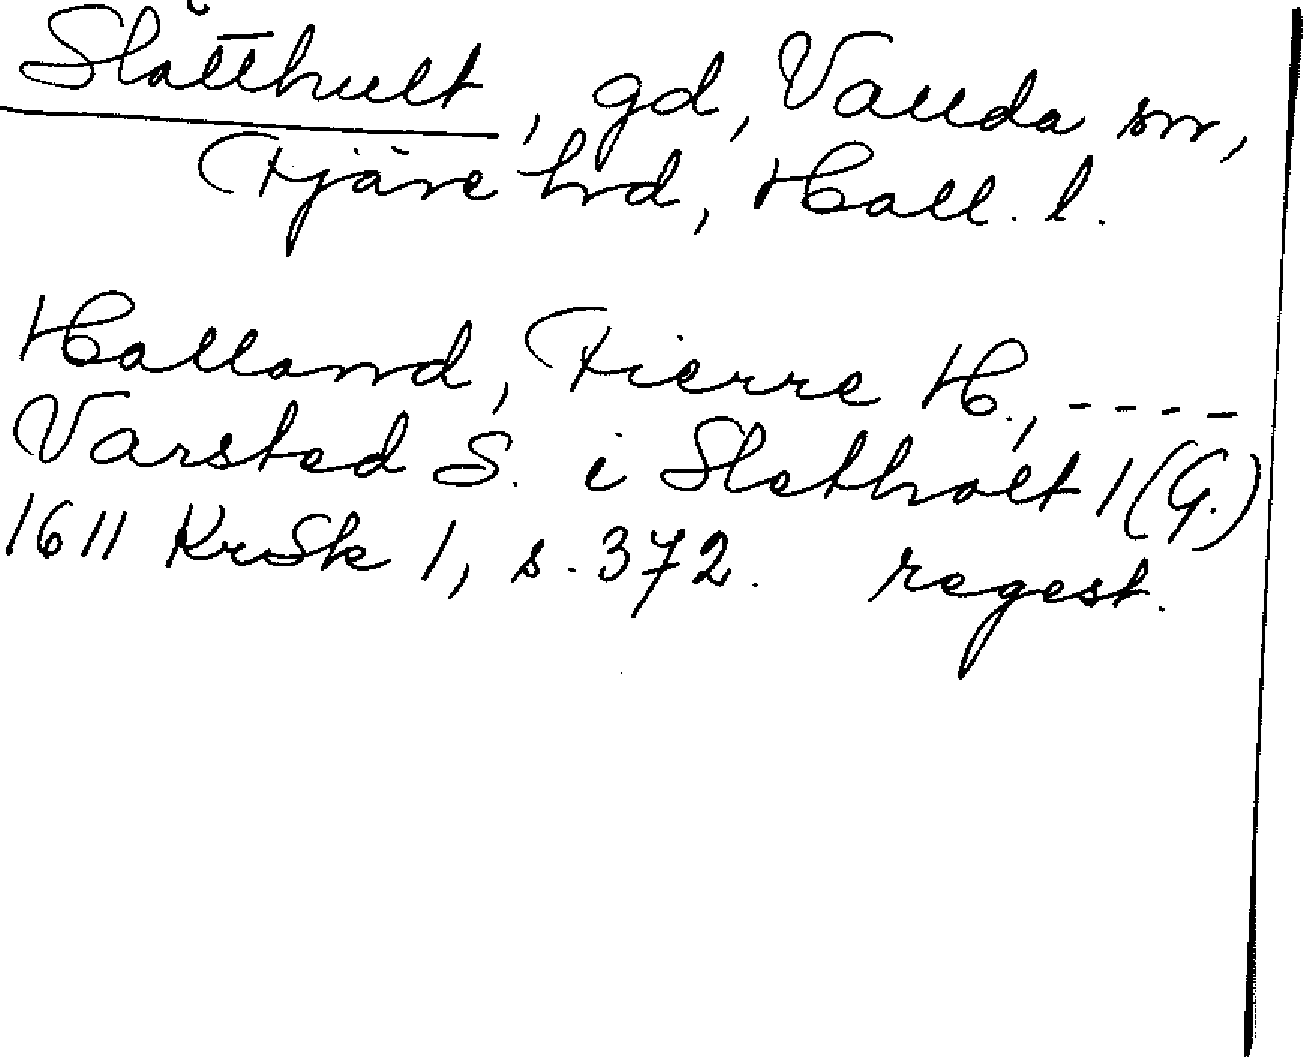 Slåtthult, gd, Vallda sn,
Fjäre hd, Hall. l.
Halland, Fierre H., ----
Varsted S. i Sletholt 1 (G.)
1611 KrSk 1, s. 372. regest.